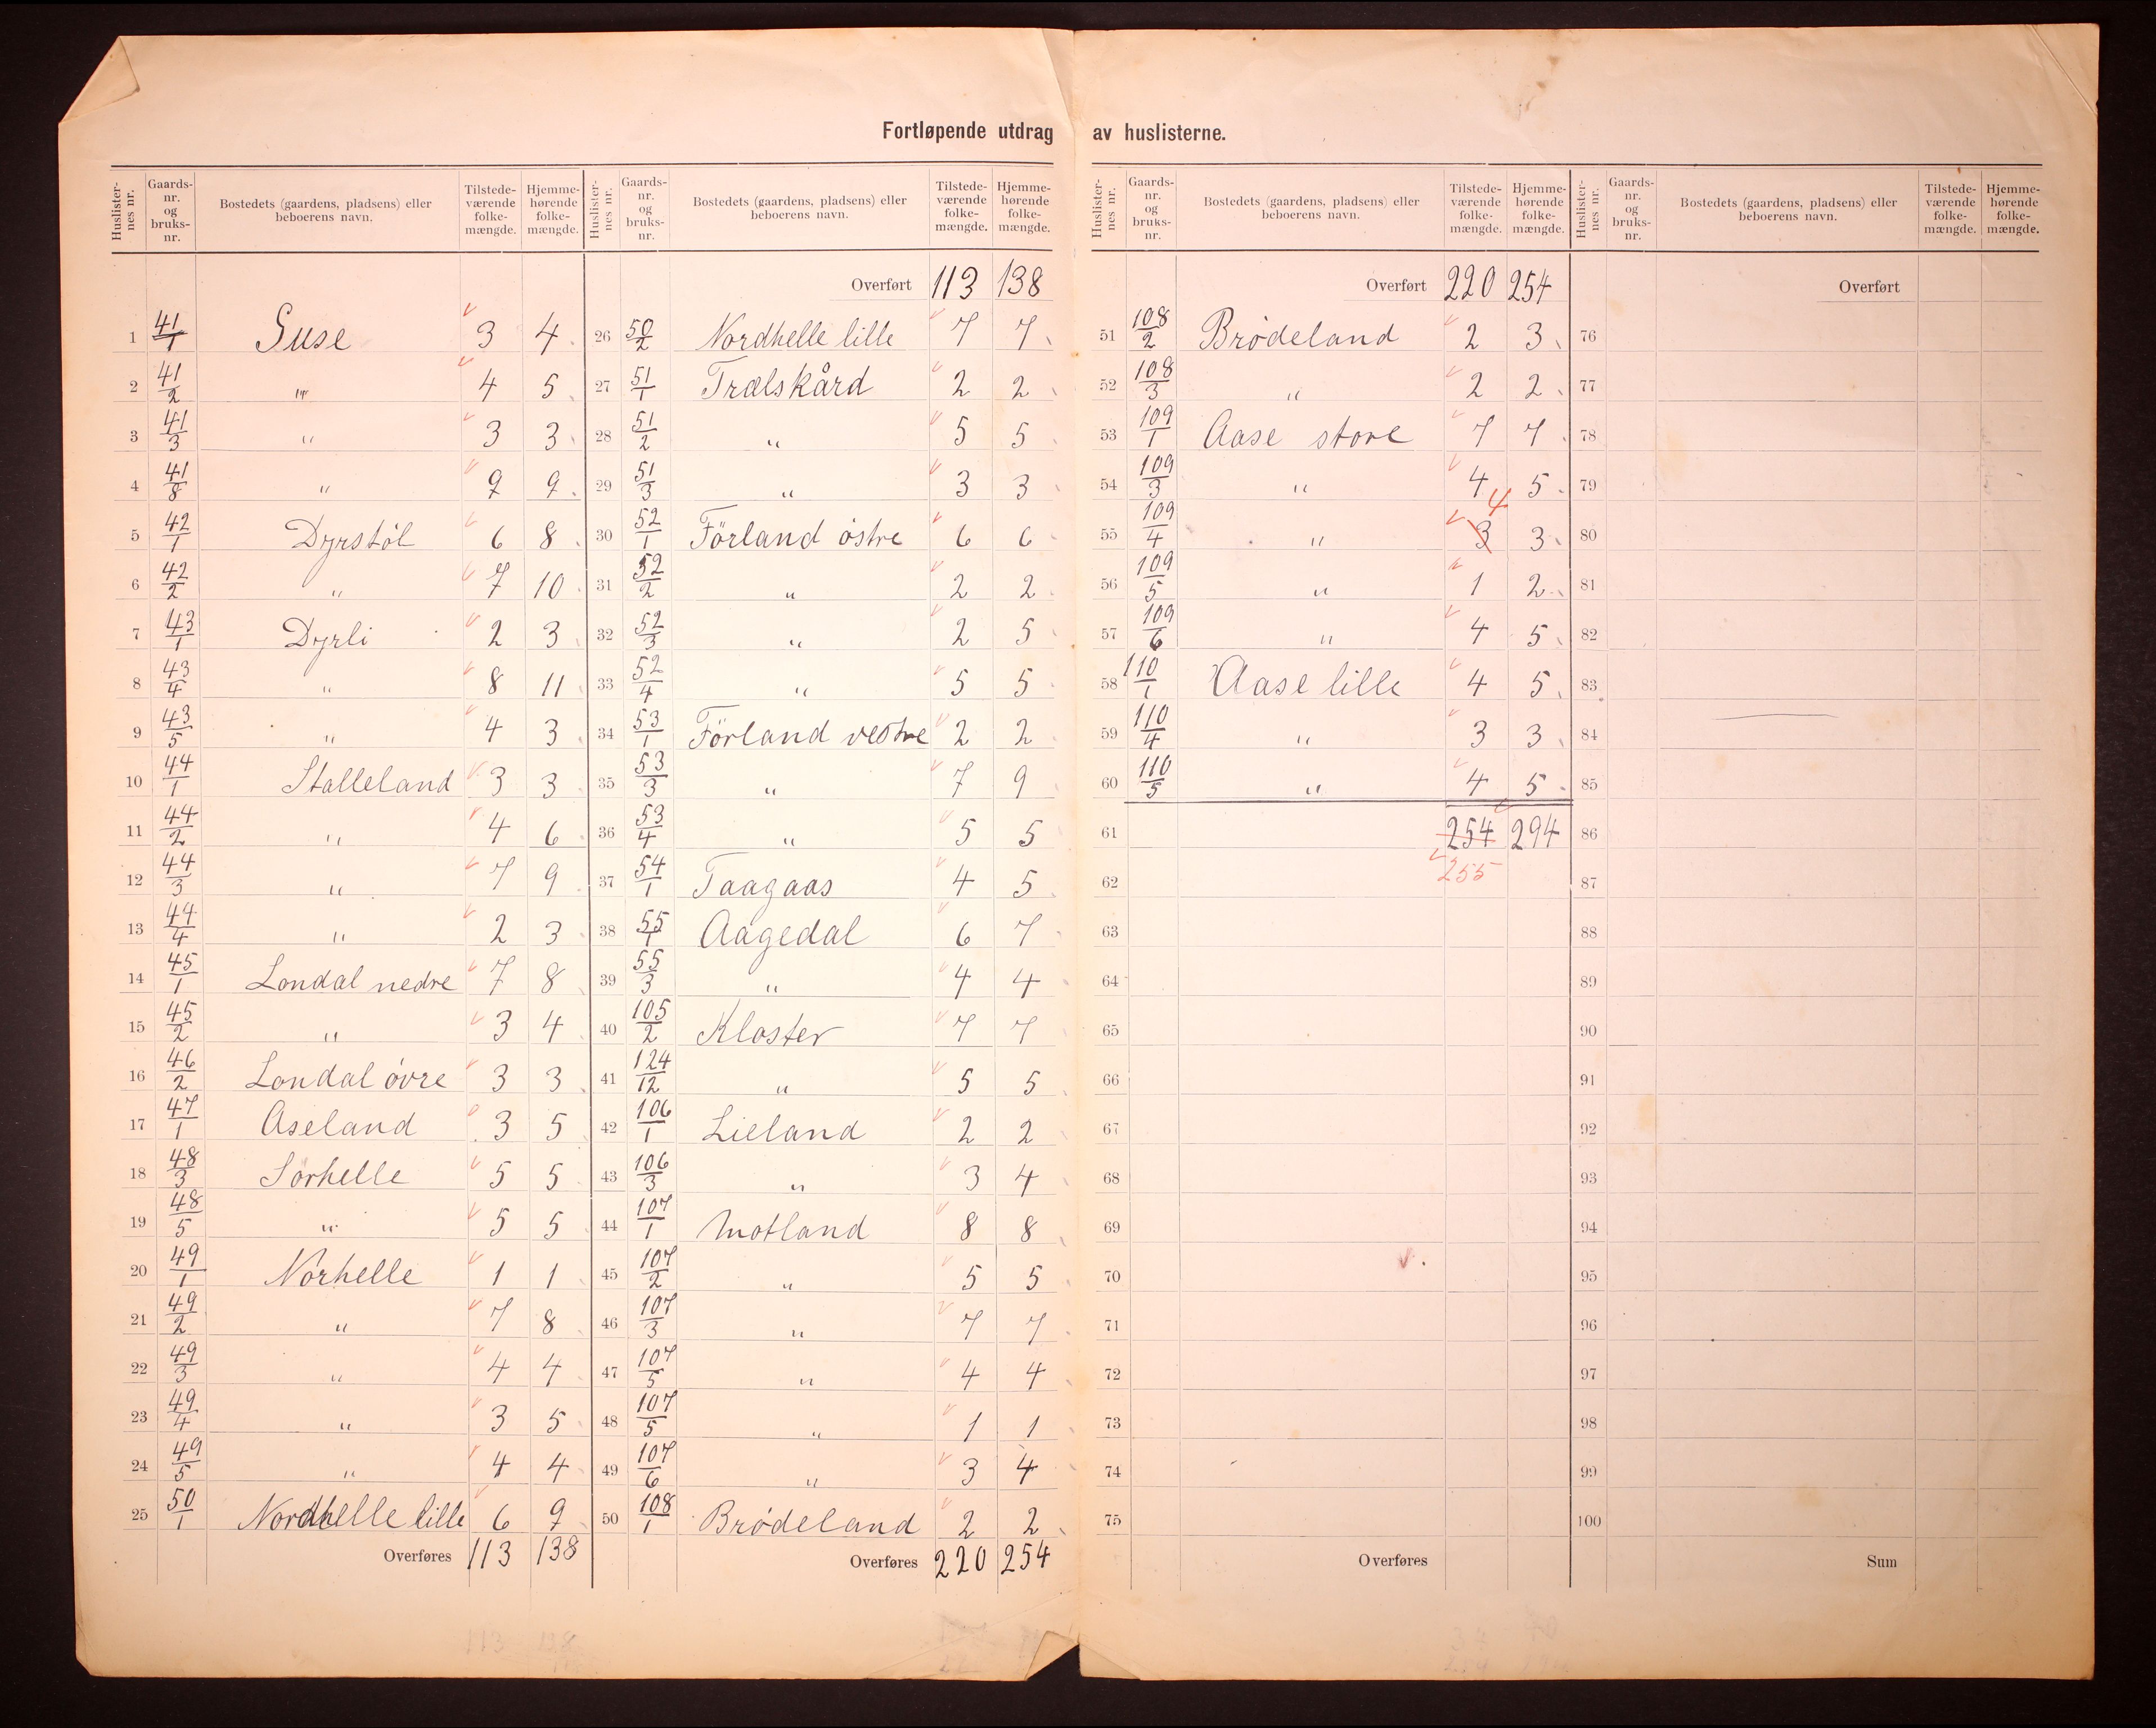 Fortløpende utdrag av huslisterne.
Huslister-nes nr. Gaards-nr. og bruks-nr. Bostedets (gaardens, pladsens) eller beboerens navn. Tilstede-værende folke-mængde. Hjemme-hørende folke-mængde.
1 41/1 Suse 3 4
2 41/2 " 4 5
3 41/3 " 3 3
4 41/8 " 9 9
5 42/1 Dyrstøl 6 8
6 42/2 " 7 10
7 43/1 Dyrli 2 3
8 43/4 " 8 11
9 43/5 " 4 3
10 44/1 Stalleland 3 3
11 44/2 " 4 6
12 44/3 " 7 9
13 44/4 " 2 3
14 45/1 Londal nedre 7 8
15 45/2 " 3 4
16 46/2 Londal övre 3 3
17 47/1 Aseland 3 5
18 48/3 Sörhelle 5 5
19 48/5 " 5 5
20 49/1 Norhelle 1 1
21 49/2 " 7 8
22 49/3 " 4 4
23 49/4 " 3 5
24 49/5 " 4 4
25 50/1 Nordhelle lille 6 9
Overføres 113 138
Huslister-nes nr. Gaards-nr. og bruks-nr. Bostedets (gaardens, pladsens) eller beboerens navn. Tilstede-værende folke-mængde. Hjemme-hørende folke-mængde.
Overført 113 138
26 50/2 Nordhelle lille 7 7
27 51/1 Trælskård 2 2
28 51/2 " 5 5
29 51/3 " 3 3
30 52/1 Förland östre 6 6
31 52/2 " 2 2
32 52/3 " 2 5
33 52/4 " 5 5
34 53/1 Förland vestre 2 2
35 53/3 " 7 9
36 53/4 " 5 5
37 54/1 Taagaas 4 5
38 55/1 Aagedal 6 7
39 55/3 " 4 4
40 105/2 Kloster 7 7
41 124/12 " 5 5
42 106/1 Lieland 2 2
43 106/3 " 3 4
44 107/1 Motland 8 8
45 107/2 " 5 5
46 107/3 " 7 7
47 107/5 " 4 4
48 107/5 " 1 1
49 107/6 " 3 4
50 108/1 Brödeland 2 2
Overføres 220 254
Huslister-nes nr. Gaards-nr. og bruks-nr. Bostedets (gaardens, pladsens) eller beboerens navn. Tilstede-værende folke-mængde. Hjemme-hørende folke-mængde.
Overført 220 254
51 108/2 Brödeland 2 3
52 108/3 " 2 2
53 109/1 Aase store 7 7
54 109/3 " 4 5
55 109/4 " 3 4 3
56 109/5 " 1 2
57 109/6 " 4 5
58 110/1 Aase lille 4 5
59 110/4 " 3 3
60 110/5 " 4 5
61 254 294
62 255
63
64
65
66
67
68
69
70
71
72
73
74
75
Overføres
Huslister-nes nr. Gaards-nr. og bruks-nr. Bostedets (gaardens, pladsens) eller beboerens navn. Tilstede-værende folke-mængde. Hjemme-hørende folke-mængde.
Overført
76
77
78
79
80
81
82
83
84
85
86
87
88
89
90
91
92
93
94
95
96
97
98
99
100
Sum
113 138